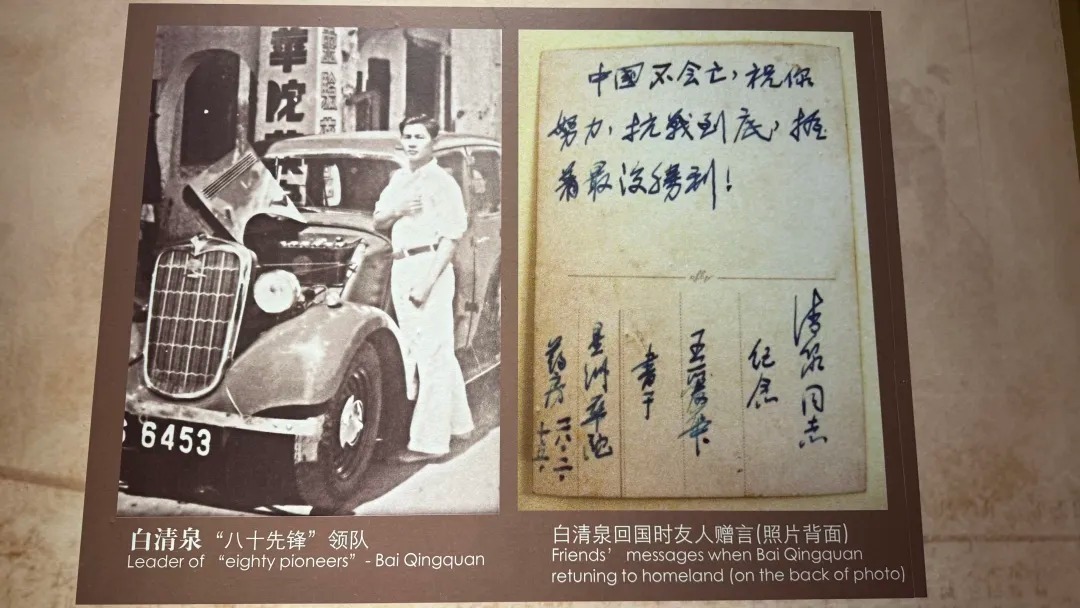 華陀
6453
中國不会亡，祝你
努力，抗戰到底，握
着最後勝利！
清泉同志
纪念
書于
星洲華陀
药房
白清泉 “八十先锋” 领队
Leader of “eighty pioneers” - Bai Qingquan
白清泉回国时友人赠言(照片背面)
Friends’ messages when Bai Qingquan
retuning to homeland (on the back of photo)